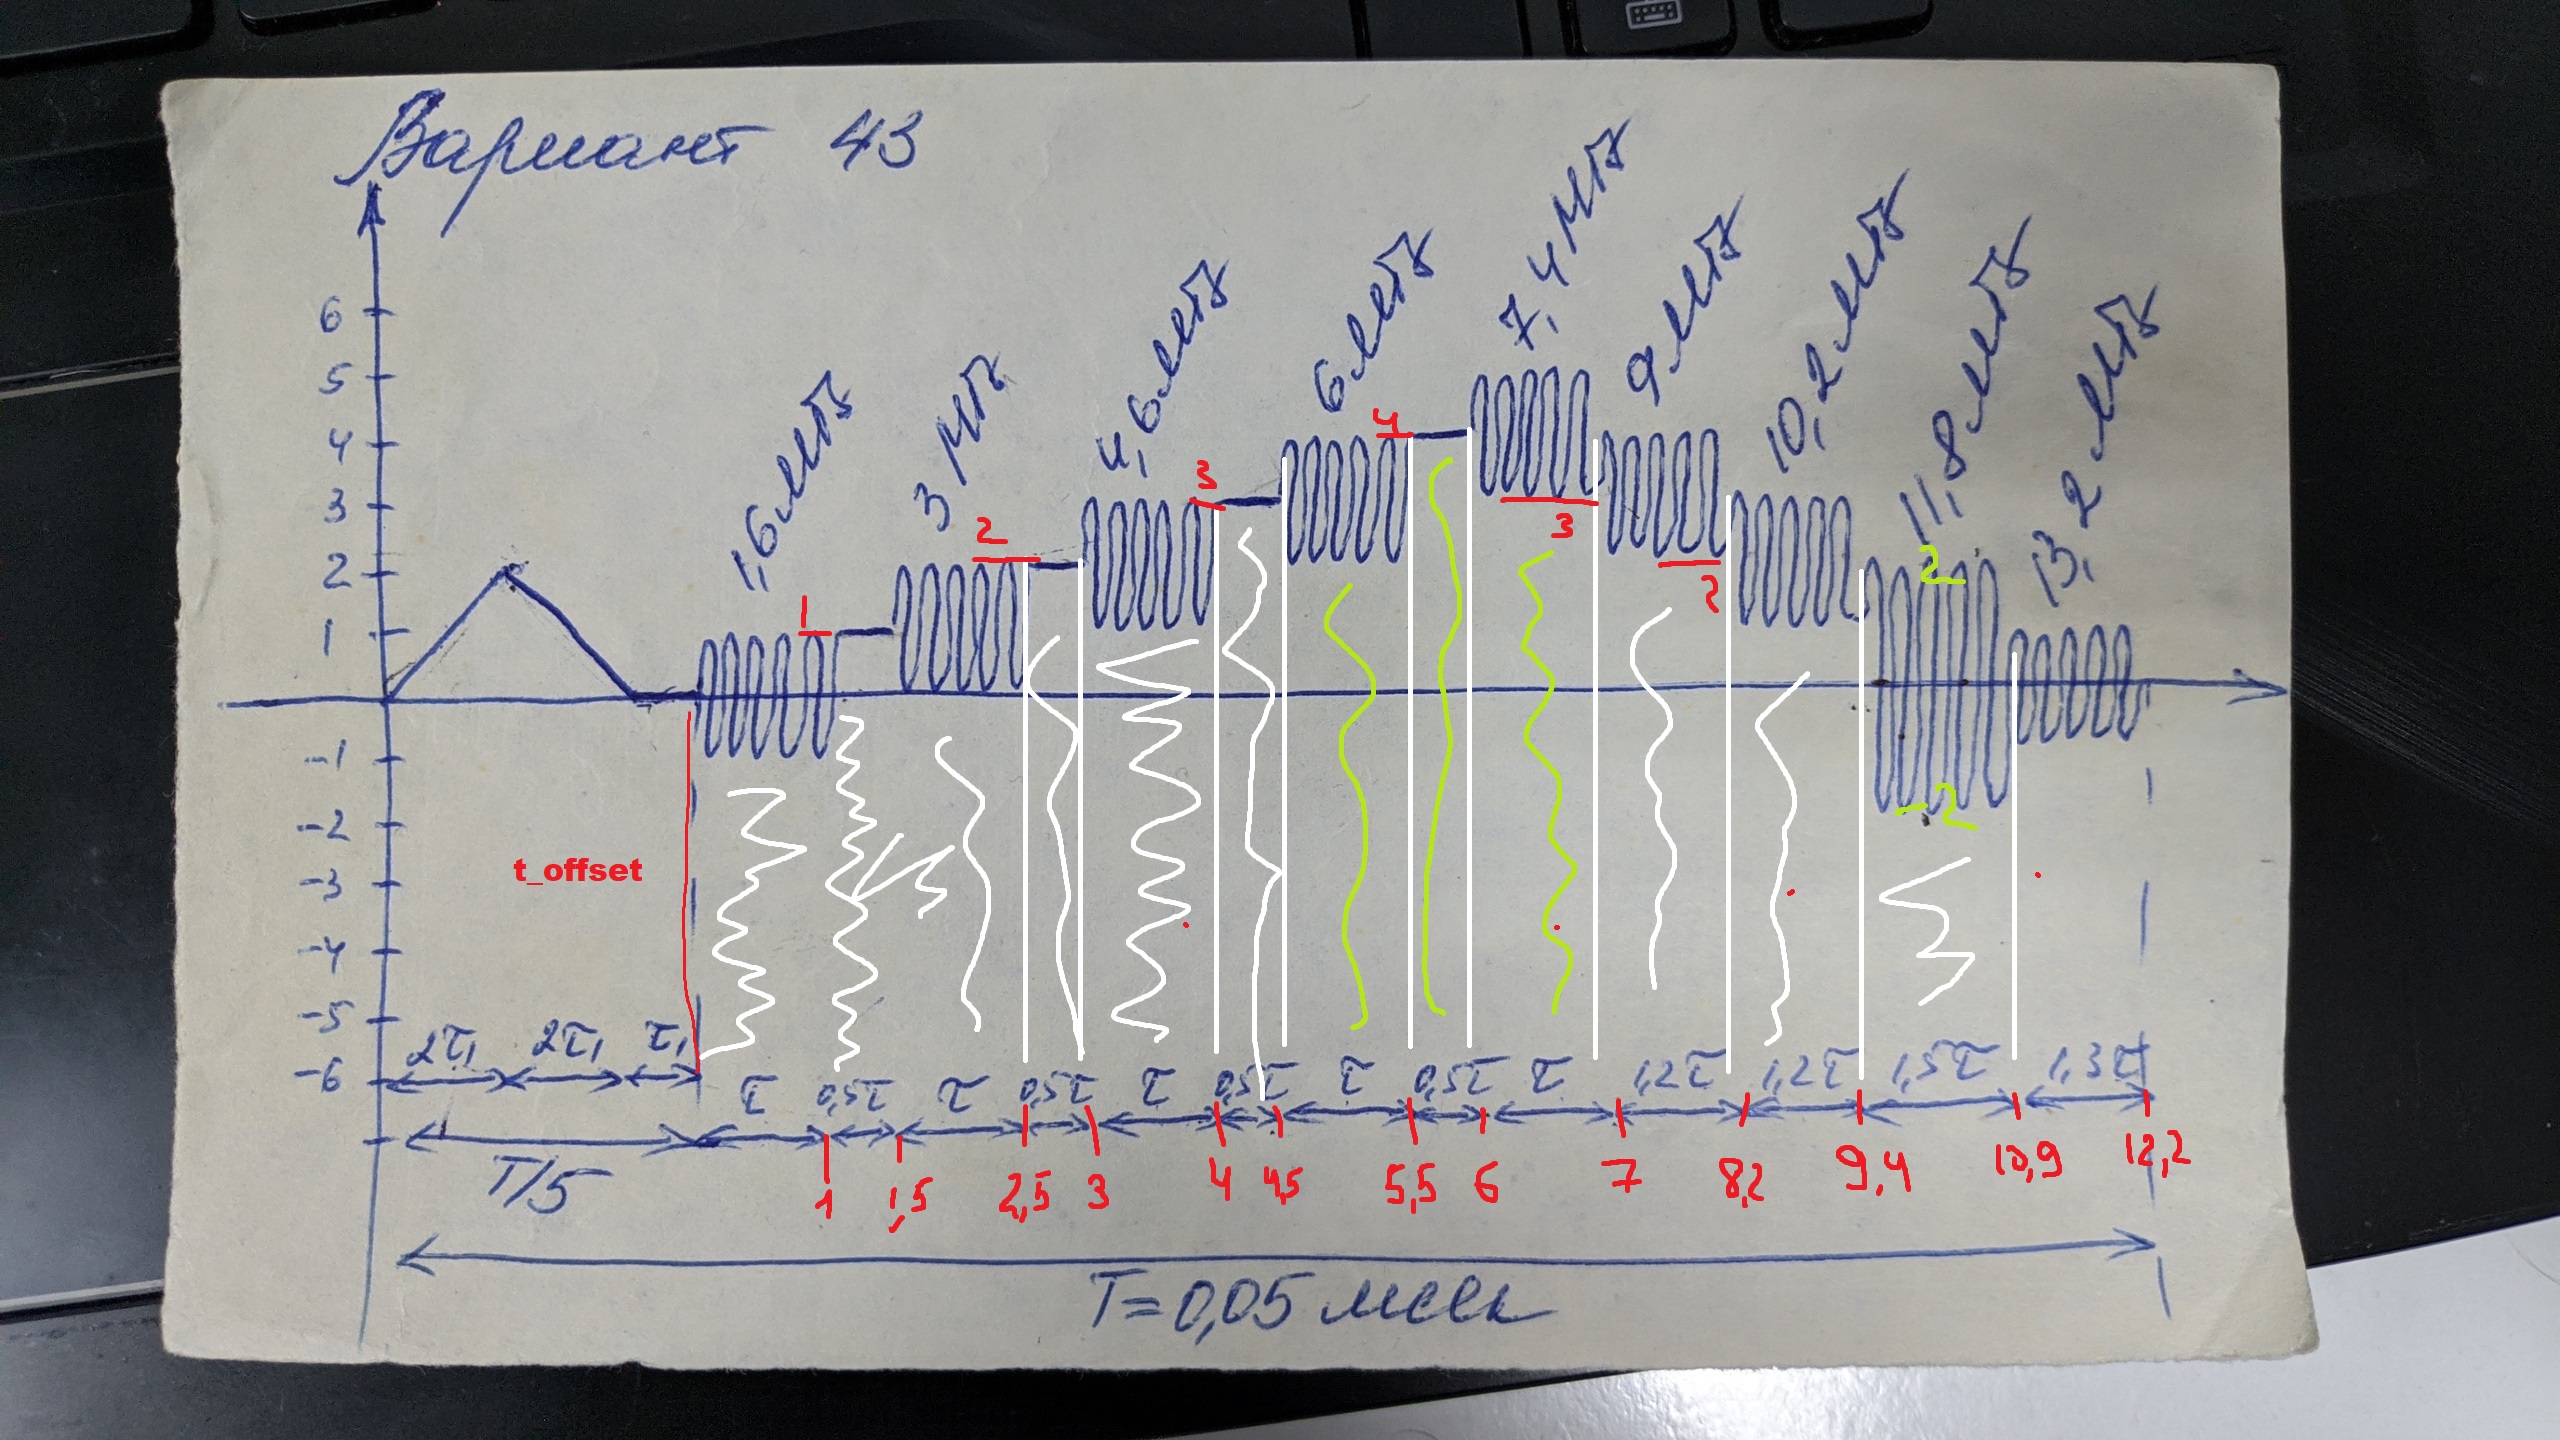 Вариант 43
1,6 мГц
3 МГц
4,6 мГц
6 мГц
7,4 МГц
9 мГц
10,2 мГц
11,8 мГц
13,2 мГц
6
5
4
3
2
1
-1
-2
-3
-4
-5
-6
1
2
3
4
3
2
2
-2
t_offset
2τ₁ 2τ₁ τ₁
τ 0,5τ τ 0,5τ τ 0,5τ τ 0,5τ τ 1,2τ 1,2τ 1,5τ 1,3τ
T/5
1 1,5 2,5 3 4 4,5 5,5 6 7 8,2 9,4 10,9 12,2
T=0,05 мсек